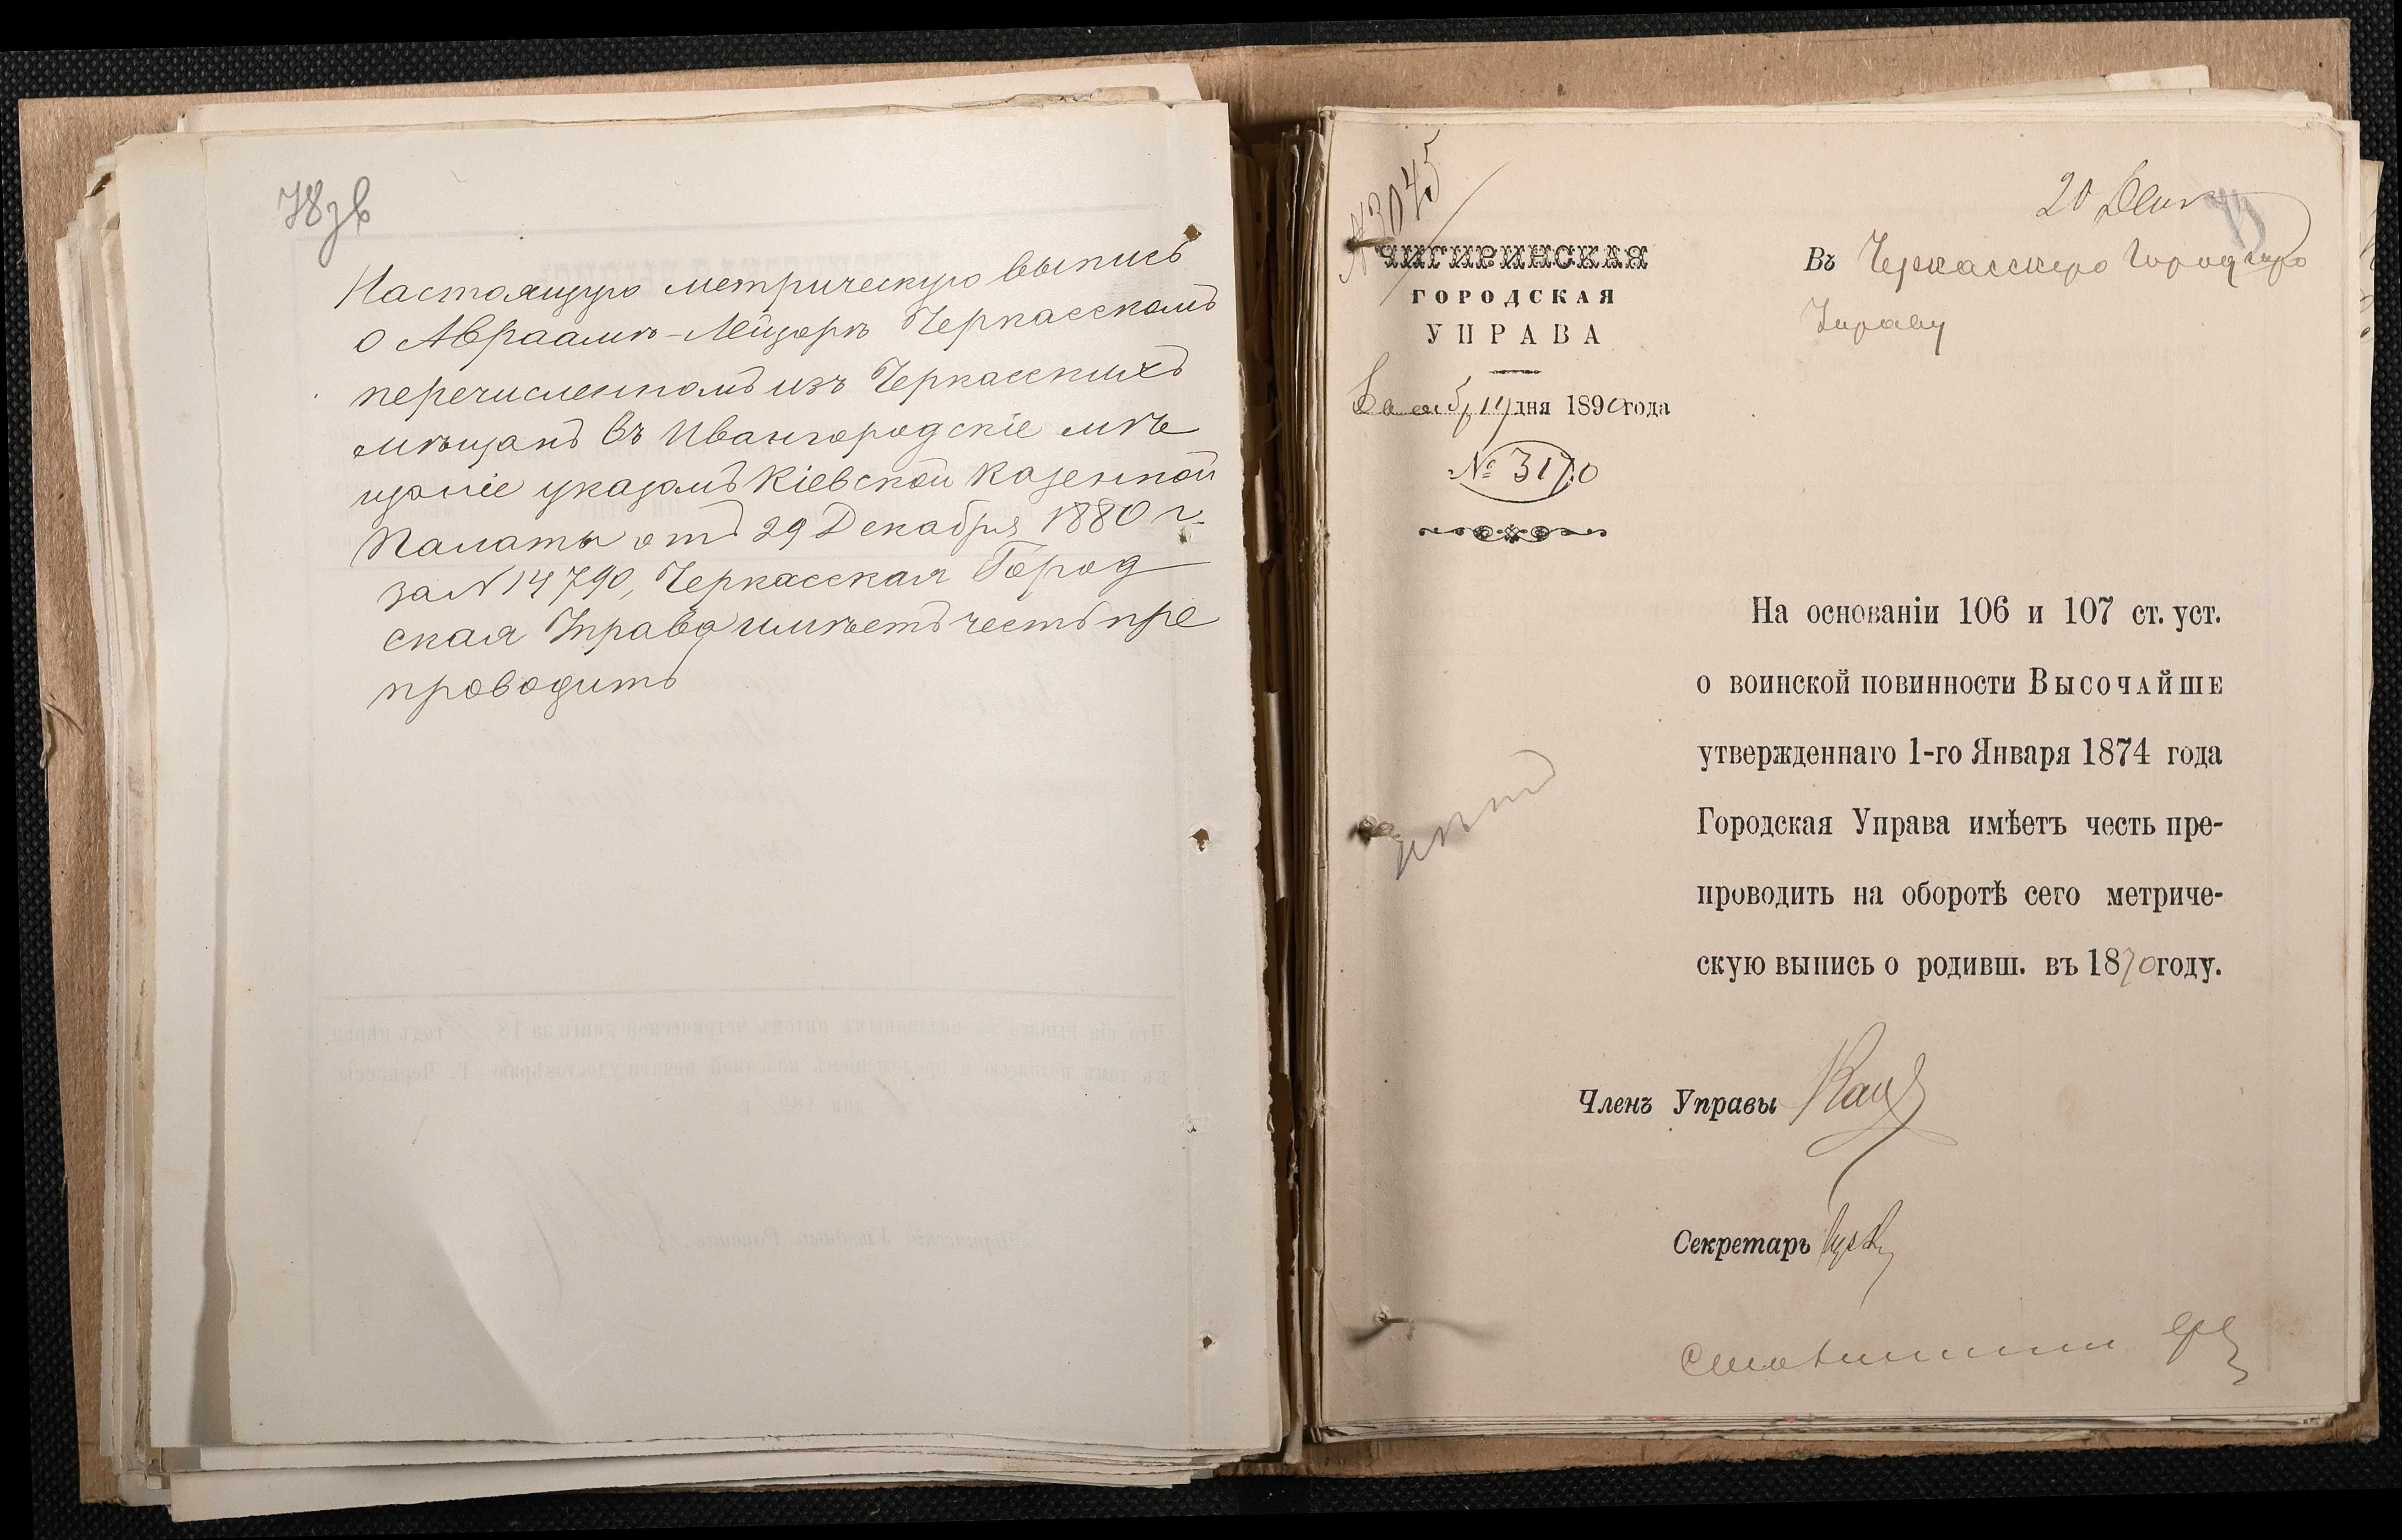 78 зв
Настоящую метрическую выпись
о Авраамѣ-Лейзорѣ Черкасскомъ
перечисленномъ изъ Черкасскихъ
мѣщанъ въ Ивангородскіе мѣ
щаніе указомъ Кіевской Казенной
Палаты отъ 29 Декабря 1880 г.
за N 14790, Черкасская Город
ская Управа имѣетъ честь пре
проводить
N 3045
20
ЧИГИРИНСКАЯ
ГОРОДСКАЯ
УПРАВА
дня 1890 года
№ 3170
Въ Черкасскую Городскую
Управу
На основаніи 106 и 107 ст. уст.
о воинской повинности Высочайше
утвержденнаго 1-го Января 1874 года
Городская Управа имѣетъ честь пре-
проводить на оборотѣ сего метриче-
скую выпись о родивш. въ 1870 году.
Членъ Управы
Секретарь